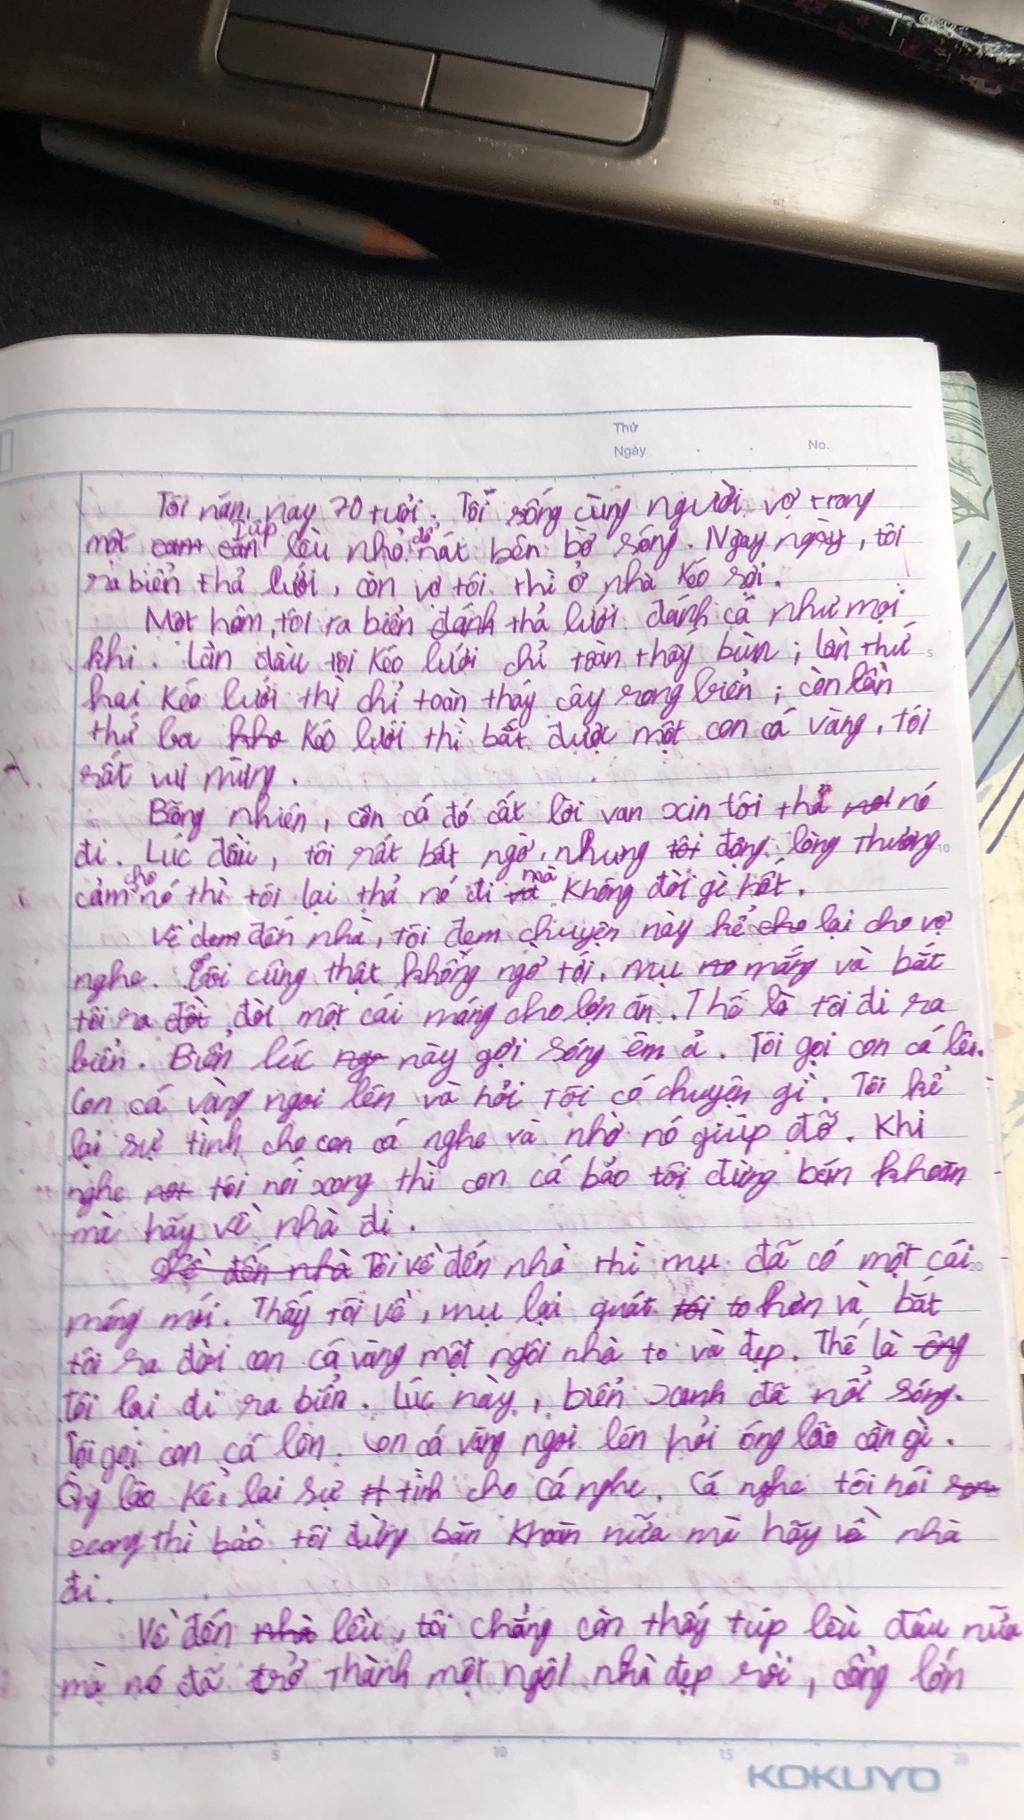 Thứ
Ngày . . No.
Tôi năm nay 70 tuổi. Tôi sống cùng người vợ trong
một túp lều nhỏ dổ nát bên bờ sóng. Ngày ngày, tôi
ra biển thả lưới, còn vợ tôi thì ở nhà kéo sợi.
Một hôm, tôi ra biển đánh thả lưới đánh cá như mọi
khi. Lần đầu tôi kéo lưới chỉ toàn thấy bùn; lần thứ
5
hai kéo lưới thì chỉ toàn thấy cây rong biển; còn lần
thứ ba kéo lưới thì bắt được một con cá vàng, tôi
rất vui mừng.
Bỗng nhiên, con cá đó cất lời van xin tôi thả nó
đi. Lúc đầu, tôi rất bất ngờ, nhưng động lòng thương
10
cảm cho nó thì tôi lại thả nó đi mà không đòi gì hết.
Về đến nhà, tôi đem chuyện này kể lại cho vợ
nghe. Tôi cũng thật không ngờ tới, mụ mắng và bắt
tôi ra đòi một cái máng cho lợn ăn. Thế là tôi đi ra
biển. Biển lúc này gợi sóng êm ả. Tôi gọi con cá lên.
Con cá vàng ngoi lên và hỏi tôi có chuyện gì. Tôi kể
lại sự tình cho con cá nghe và nhờ nó giúp đỡ. Khi
nghe tôi nói xong thì con cá bảo tôi đừng bén khoăn
mà hãy về nhà đi.
Tôi về đến nhà thì mụ đã có một cái
20
máng mới. Thấy tôi về, mụ lại quát to hơn và bắt
tôi ra đòi con cá vàng một ngôi nhà to và đẹp. Thế là
tôi lại đi ra biển. Lúc này, biển xanh đã nổi sóng.
Tôi gọi con cá lên. Con cá vàng ngoi lên hỏi ông lão cần gì.
Ông lão kể lại sự tình cho cá nghe. Cá nghe tôi nói
xong thì bảo tôi đừng băn khoăn nữa mà hãy về nhà
đi.
Về đến lều, tôi chẳng còn thấy túp lều đâu nữa
mà nó đã trở thành một ngôi nhà đẹp rồi, cổng lớn
0 5 10 15 20
KOKUYO